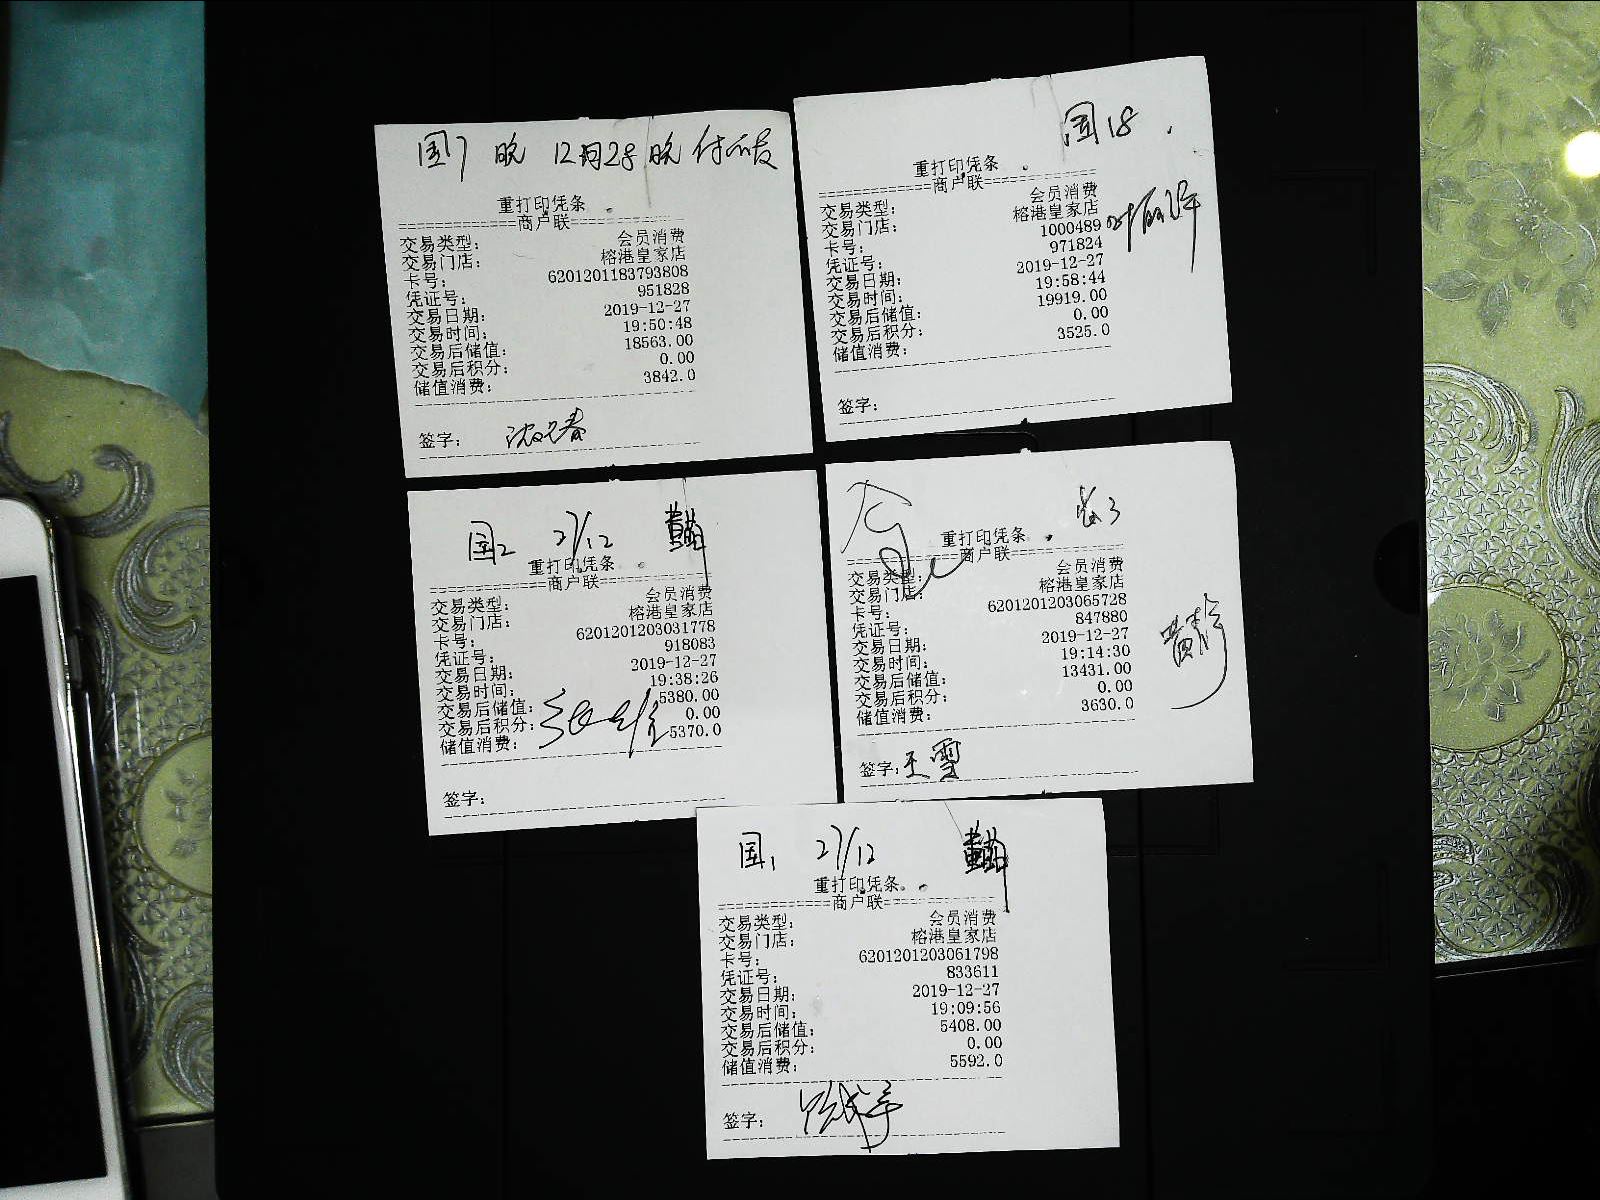 国7 晚 12月28晚
重打印凭条
==============商户联==============
交易类型： 会员消费
交易门店： 榕港皇家店
卡号： 6201201183793808
凭证号： 951828
交易日期： 2019-12-27
交易时间： 19:50:48
交易后储值： 18563.00
交易后积分： 0.00
储值消费： 3842.0
签字：
国18
重打印凭条
==============商户联==============
交易类型： 会员消费
交易门店： 榕港皇家店
卡号： 1000489
凭证号： 971824
交易日期： 2019-12-27
交易时间： 19:58:44
交易后储值： 19919.00
交易后积分： 0.00
储值消费： 3525.0
签字：
国2 27/12
重打印凭条
==============商户联==============
交易类型： 会员消费
交易门店： 榕港皇家店
卡号： 6201201203031778
凭证号： 918083
交易日期： 2019-12-27
交易时间： 19:38:26
交易后储值： 5380.00
交易后积分： 0.00
储值消费： 5370.0
签字：
重打印凭条
==============商户联==============
交易类型： 会员消费
交易门店： 榕港皇家店
卡号： 6201201203065728
凭证号： 847880
交易日期： 2019-12-27
交易时间： 19:14:30
交易后储值： 13431.00
交易后积分： 0.00
储值消费： 3630.0
签字：王雪
国1 27/12
重打印凭条
==============商户联==============
交易类型： 会员消费
交易门店： 榕港皇家店
卡号： 6201201203061798
凭证号： 833611
交易日期： 2019-12-27
交易时间： 19:09:56
交易后储值： 5408.00
交易后积分： 0.00
储值消费： 5592.0
签字：